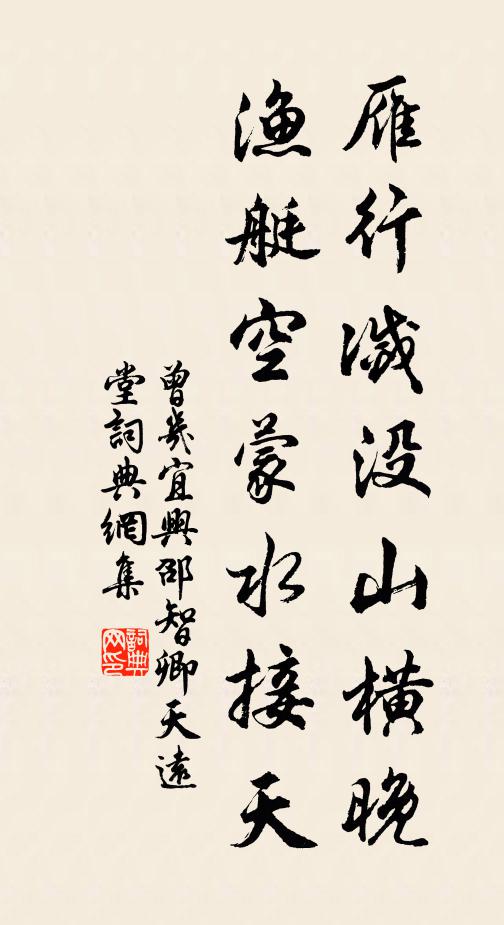 雁行滅没山橫晚
漁艇空蒙水接天
曾幾宜興邵智卿天遠
堂詞典網集
詞典
网印